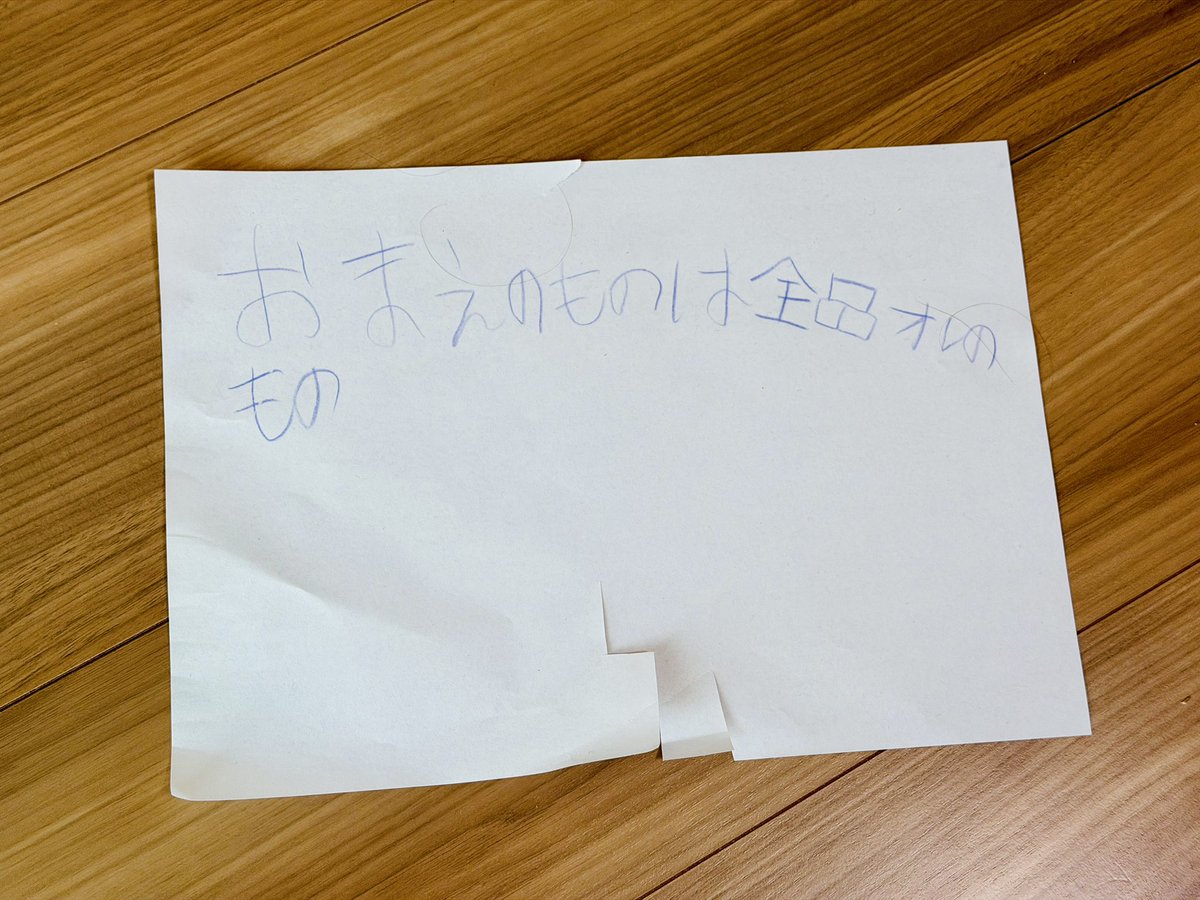 おまえのものは全品オレの
もの